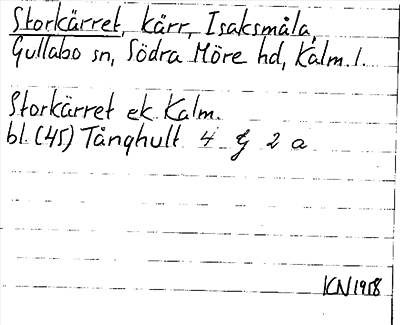 Storkärret, kärr, Isaksmåla,
Gullabo sn, Södra Möre hd, Kalm. l.
Storkärret ek. Kalm.
bl. (45) Tånghult 4 G 2 a
KN 1958